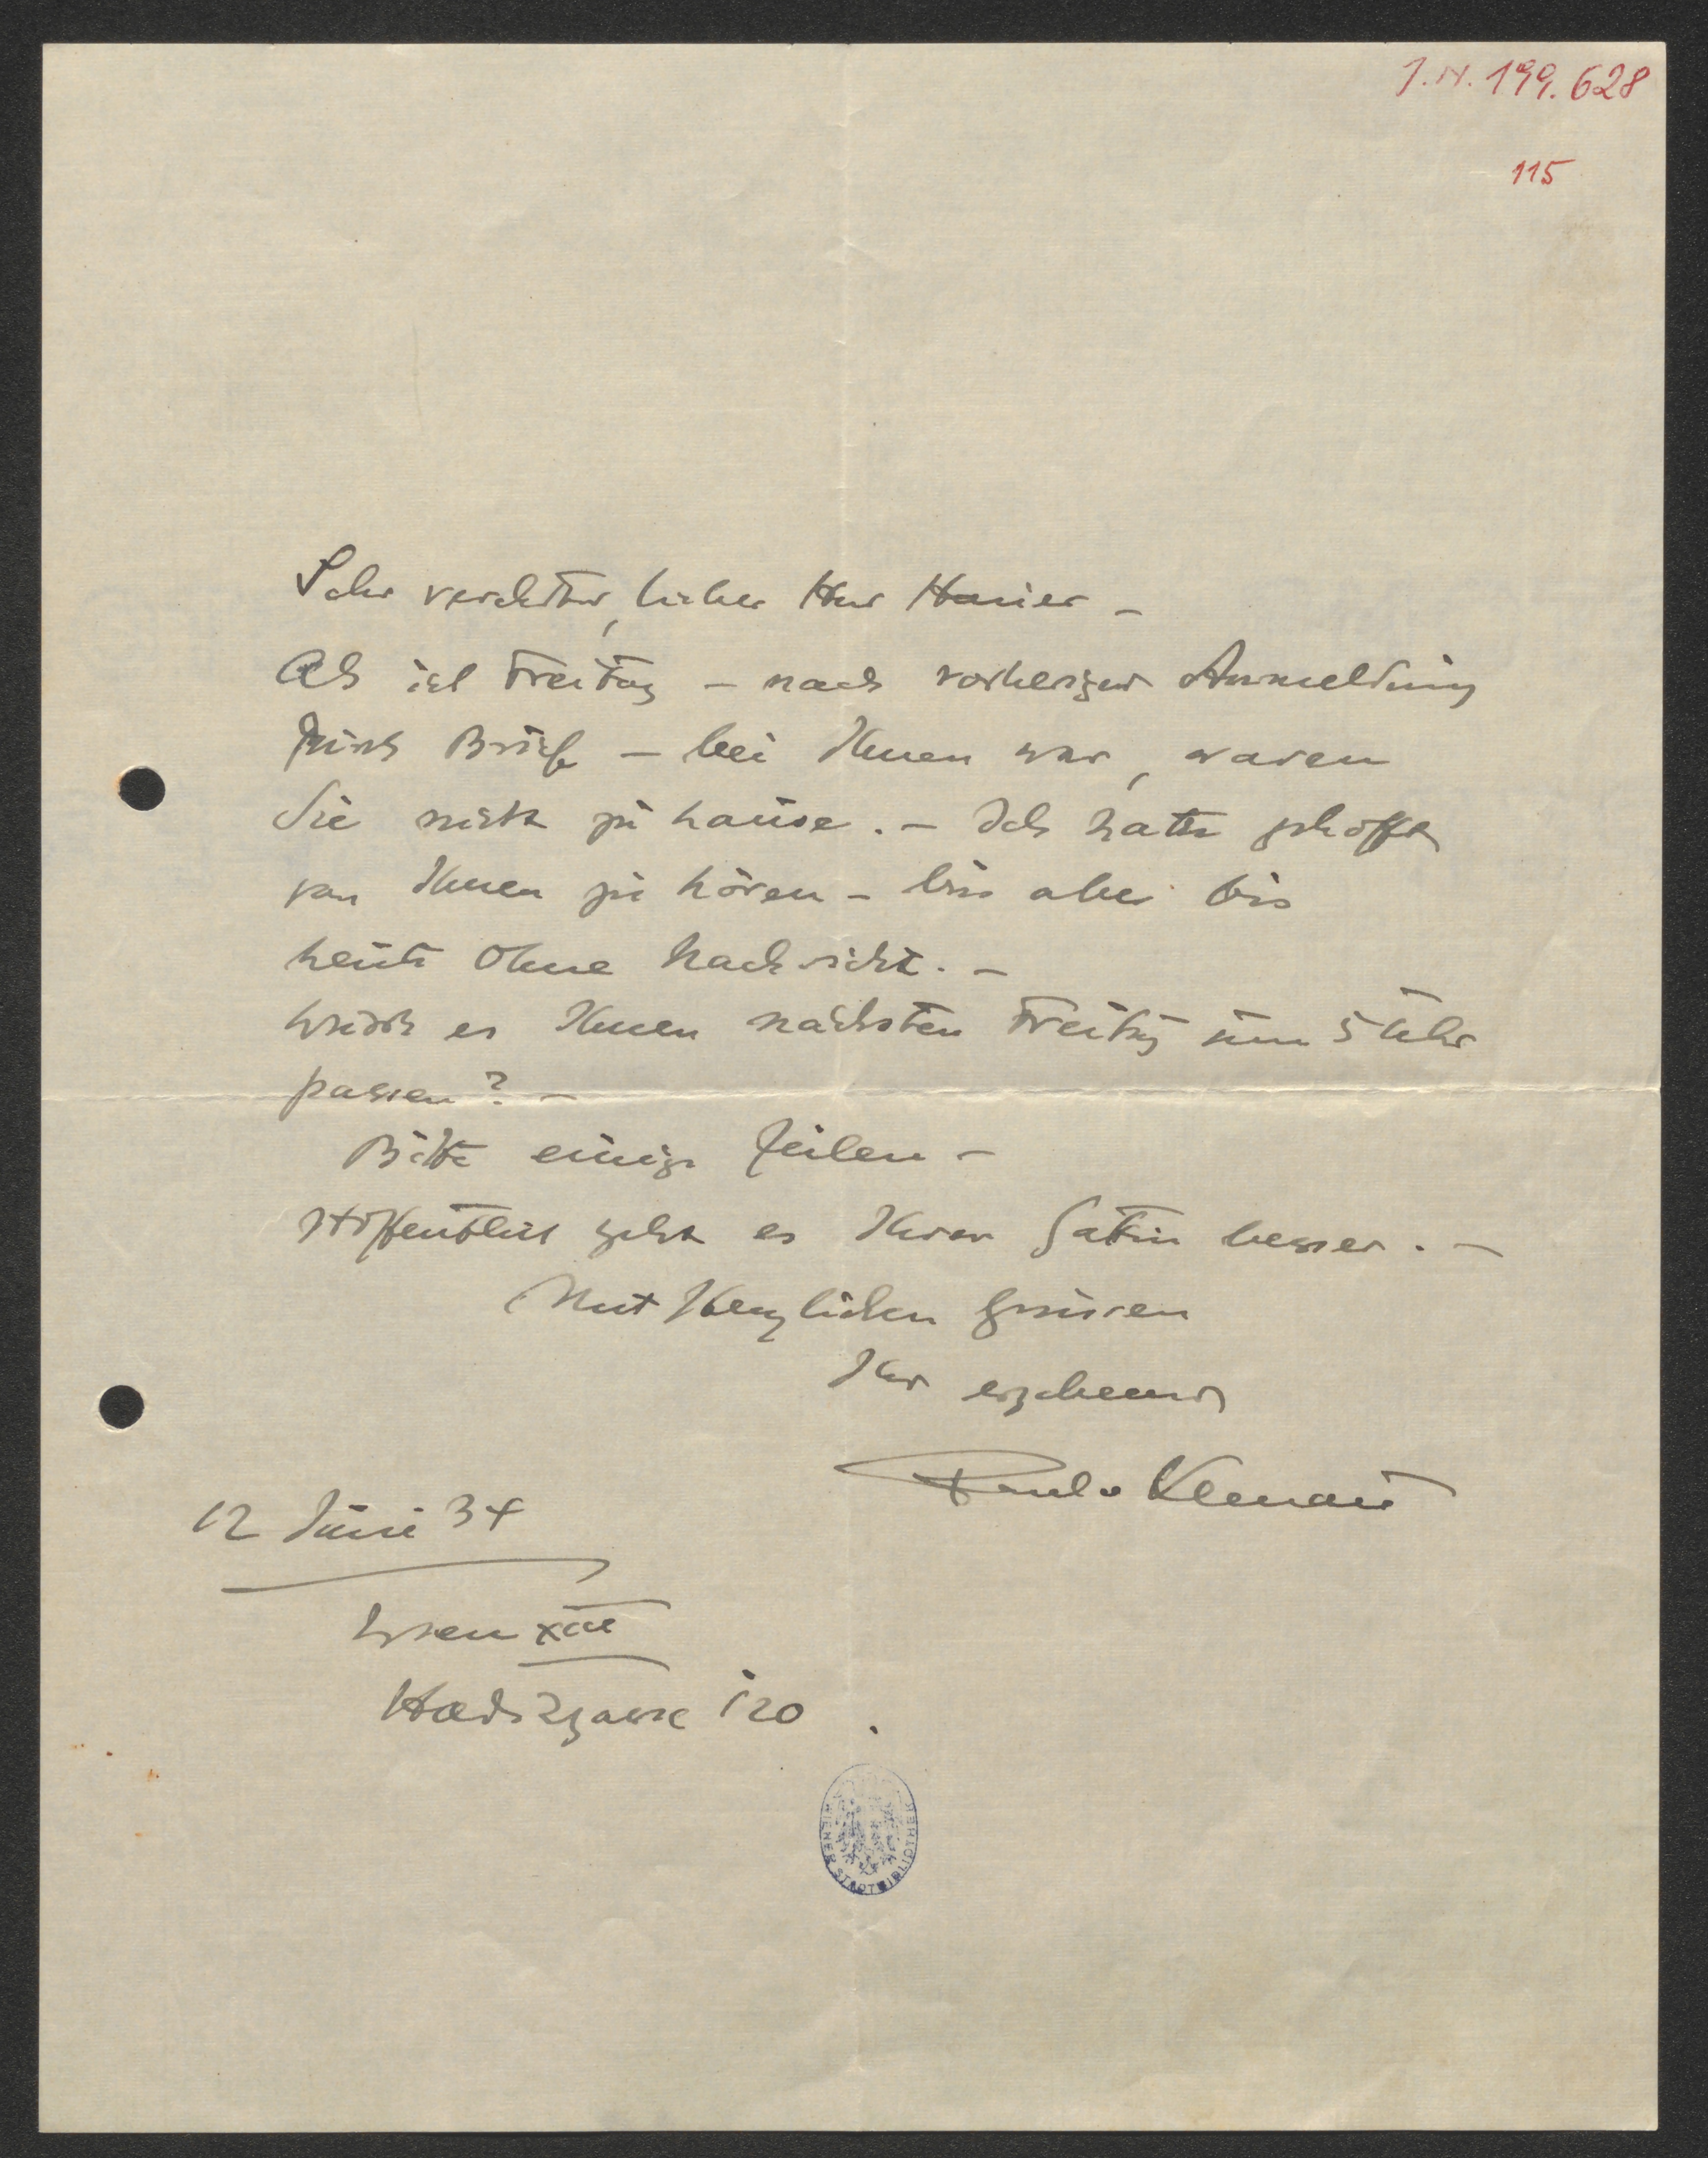 J.N. 199.628
115
Sehr verehrter, lieber Herr Hauer –
Als ich Freitag – nach vorheriger Anmeldung
durch Brief – bei Ihnen war, waren
Sie nicht zu hause. – Ich hatte gehofft
von Ihnen zu hören – bin aber bis
heute ohne Nachricht. –
Würde es Ihnen nächsten Freitag um 5 Uhr
passen? –
Bitte einige Zeilen –
Hoffentlich geht es Ihrer Gattin besser. –
Mit Herzlichen Grüssen
Ihr ergebener
Paul v Klenau
12 Juni 34
Wien XIII
Hadikgasse 120
WIENER STADTBIBLIOTHEK